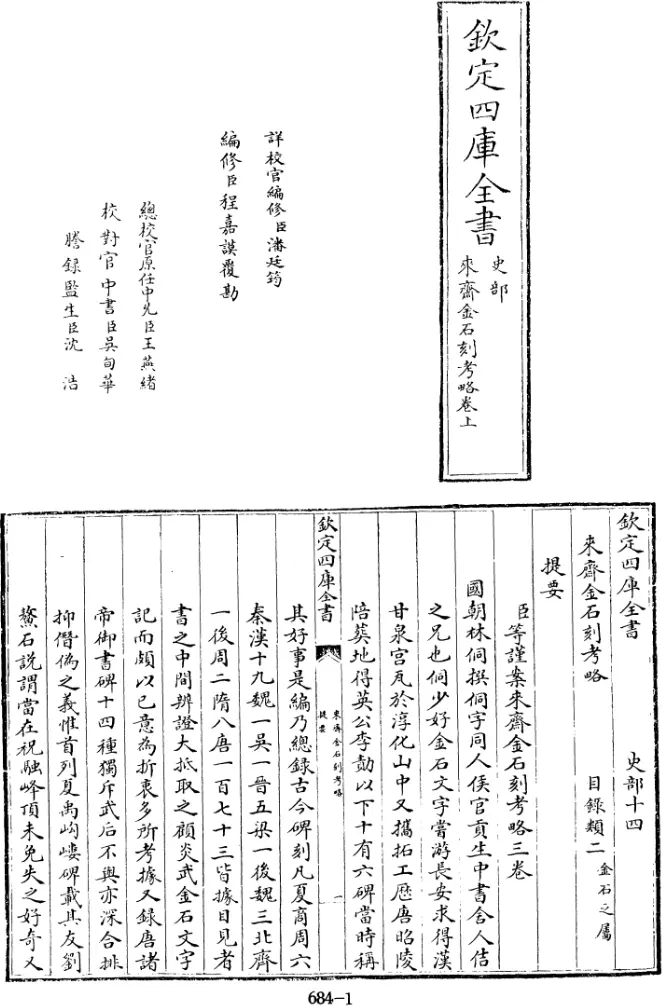 欽定四庫全書
史部
來齋金石刻考略卷上
詳校官編修臣潘廷筠
編修臣程嘉謨覆勘
總校官原任中允臣王燕緒
校對官中書臣吳甸華
謄錄監生臣沈浩
欽定四庫全書
史部十四
來齋金石刻考略
目錄類二金石之屬
提要
臣等謹案來齋金石刻考略三卷
國朝林侗撰侗字同人侯官貢生中書舍人佶
之兄也侗少好金石文字嘗游長安求得漢
甘泉宮瓦於淳化山中又攜拓工歷唐昭陵
陪葬地得英公李勣以下十有六碑當時稱
欽定四庫全書
來齋金石刻考略
提要
一
其好事是編乃總錄古今碑刻凡夏商周六
秦漢十九魏一吳一晉五梁一後魏三北齊
一後周二隋八唐一百七十三皆據目見者
書之中間辨證大抵取之顧炎武金石文字
記而頗以己意為折衷多所考據又錄唐諸
帝御書碑十四種獨斥武后不與亦深合排
抑僭偽之義惟首列夏禹岣嶁碑載其友劉
鰲石說謂當在祝融峰頂未免失之好奇又
684-1